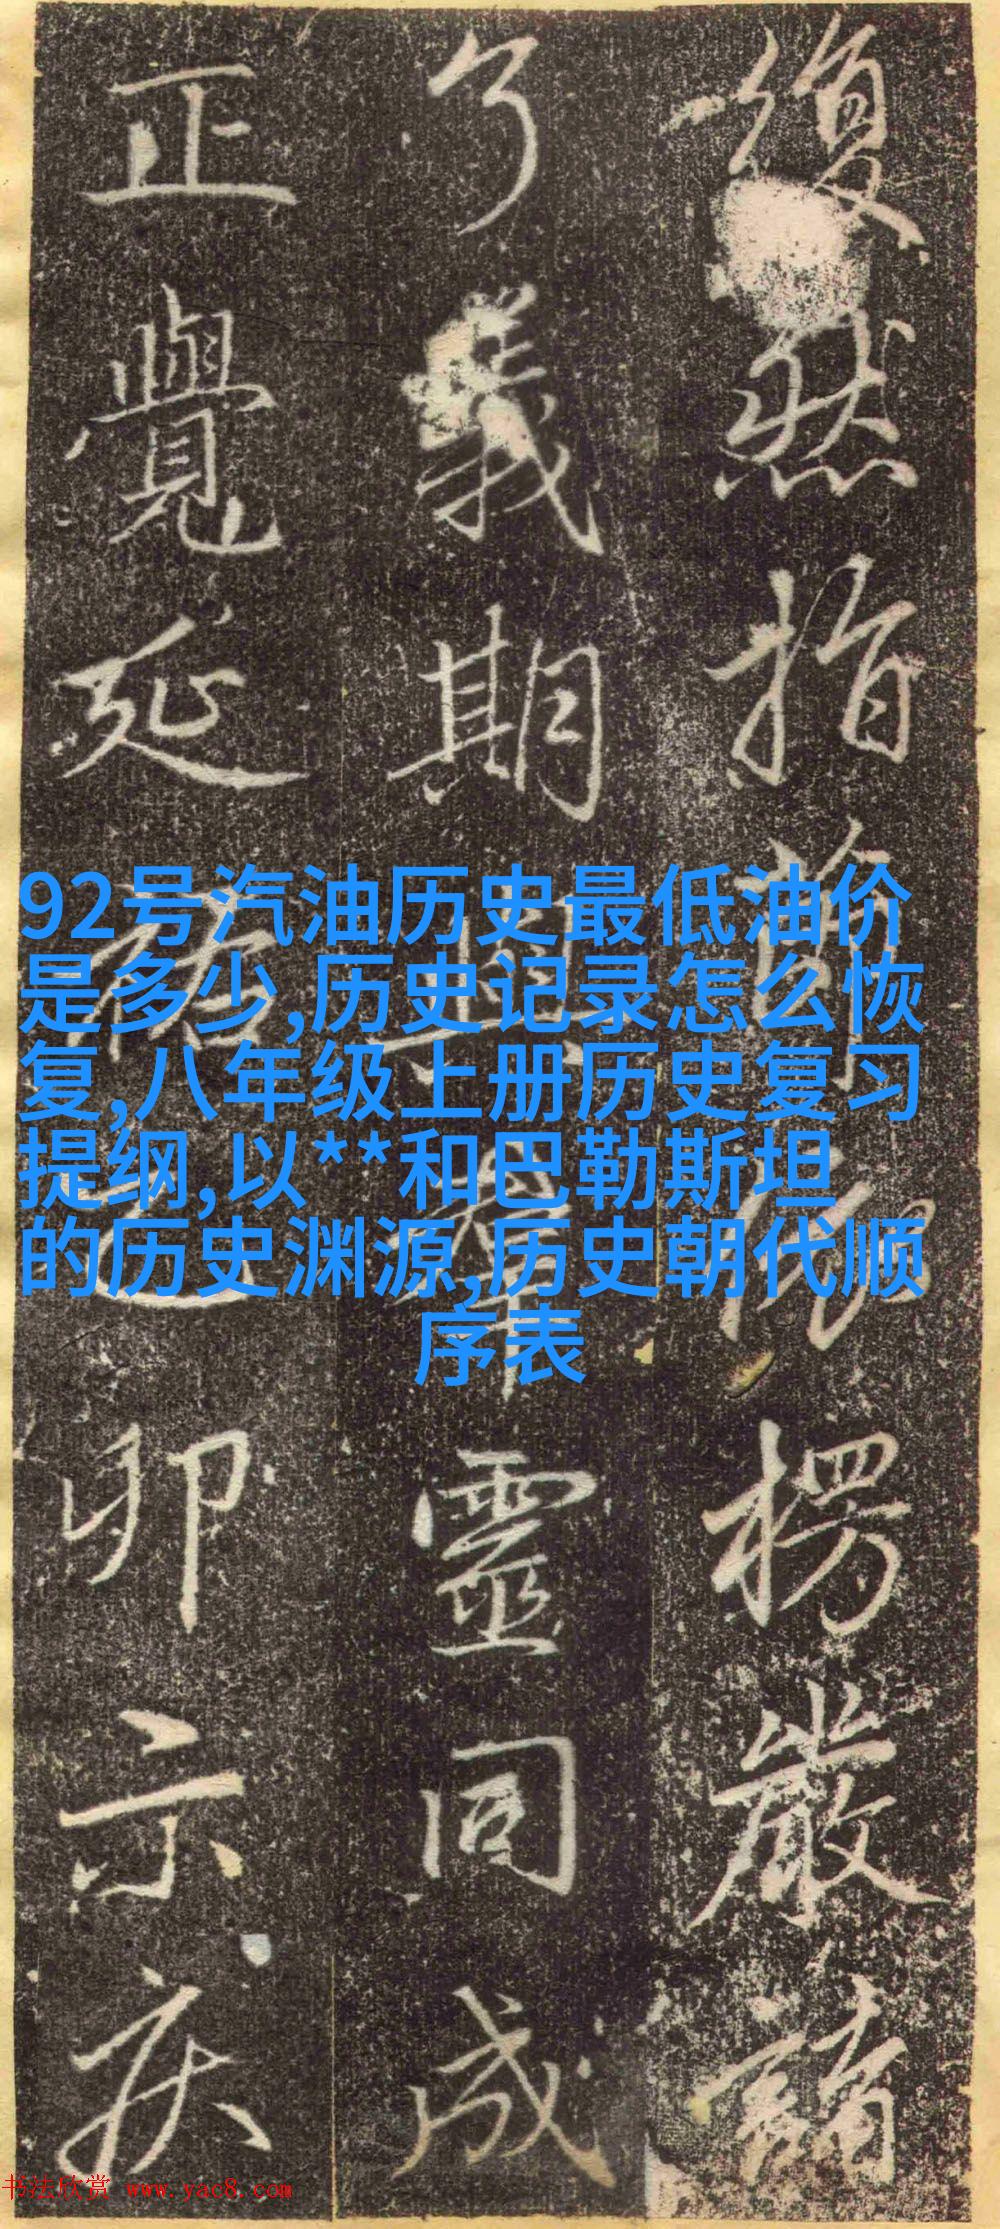 復然指楞嚴
了義期靈同成
正覺延祐卯
92号汽油历史最低油价
是多少,历史记录怎么恢
复,八年级上册历史复习
提纲,以**和巴勒斯坦
的历史渊源,历史朝代顺
序表
书法欣赏 www.yac8.com